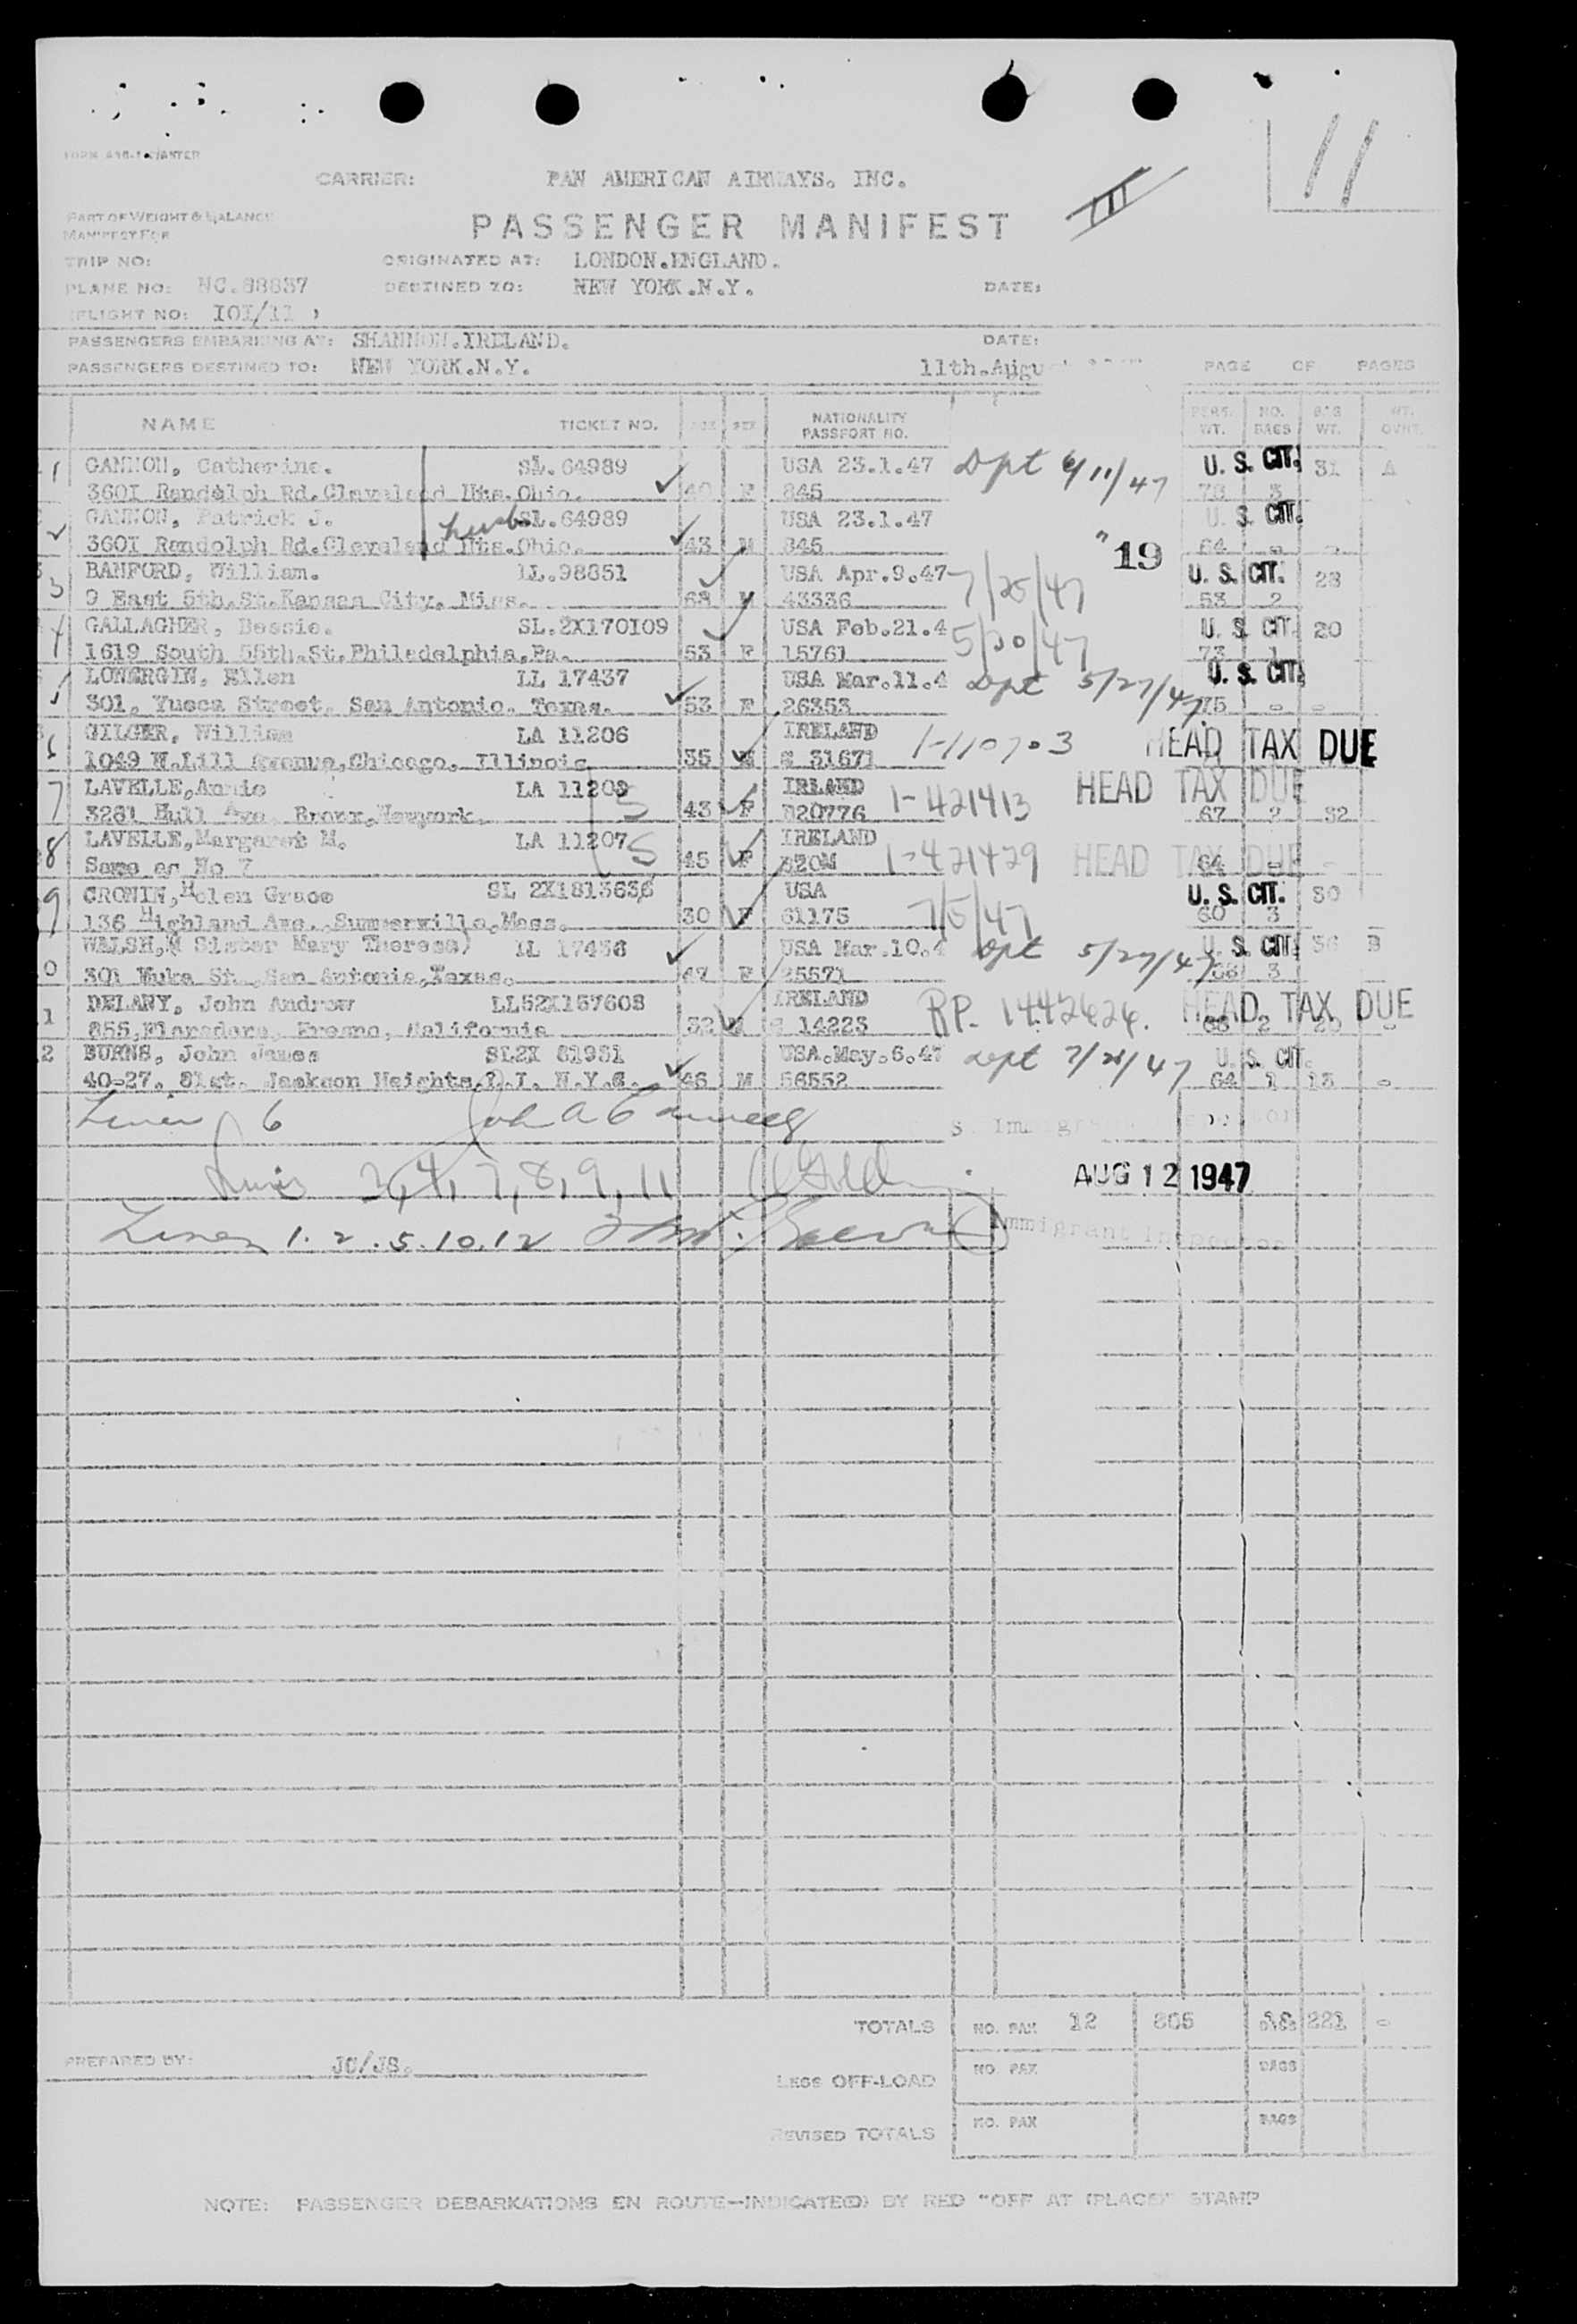 11
FORM A96-1 MASTER
CARRIER: PAN AMERICAN AIRWAYS. INC.
III
PART OF WEIGHT & BALANCE
MANIFEST FOR
PASSENGER MANIFEST
TRIP NO: ORIGINATED AT: LONDON.ENGLAND.
PLANE NO: NC.88837 DESTINED TO: NEW YORK.N.Y. DATE:
(FLIGHT NO: IOI/11 )
PASSENGERS EMBARKING AT: SHANNON.IRELAND. DATE:
PASSENGERS DESTINED TO: NEW YORK.N.Y. 11th.Augu PAGE OF PAGES
NAME TICKET NO. AGE SEX NATIONALITY PASSPORT NO. PERS. WT. NO. BAGS BAG WT. WT. OVWT.
1 GANNON, Catherine. SL.64989 USA 23.1.47 Dpt 6/11/47 U. S. CIT. 31 A
360I Randolph Rd.Cleveland Hts.Ohio. 40 F 845 78 3
2 GANNON, Patrick J. husb SL.64989 USA 23.1.47 U. S. CIT.
360I Randolph Rd.Cleveland Hts.Ohio. 43 M 845 " 19 64 - -
3 BANFORD, William. LL.98851 USA Apr.9.47 7/25/47 U. S. CIT. 28
9 East 5th.St.Kansas City, Miss. 68 M 43336 53 2
4 GALLAGHER, Bessie. SL.2X170I09 USA Feb.21.4 5/20/47 U. S. CIT. 20
1619 South 55th.St.Philadelphia,Pa. 53 F 15761 73 1
5 LONERGIN, Ellen LL 17437 USA Mar.11.4 Dpt 5/27/47 U. S. CIT.
301, Yucca Street, San Antonio. Texas. 53 F 26353 75 - -
6 GILGER, William LA 11206 IRELAND 1-110703 HEAD TAX DUE
1049 W.Lill Avenue,Chicago. Illinois 35 M 31671
7 LAVELLE,Annie LA 11208 S IRELAND 1-421413 HEAD TAX DUE
3281 Hull Ave. Bronx,Newyork. 43 F 820776 67 2 32
8 LAVELLE,Margaret M. LA 11207 S IRELAND 1-421429 HEAD TAX DUE
Same as No 7 45 F 64 - -
9 CRONIN,Helen Grace SL 2X1813636 USA 7/5/47 U. S. CIT. 30
136 Highland Ave. Summerville,Mass. 30 F 61175 60 3
0 WALSH,( Sister Mary Theresa) LL 17436 USA Mar.10.4 Dpt 5/27/47 U. S. CIT. 36 B
301 Yuka St.,San Antonio,Texas. 47 F 25571 68 3
1 DELANY, John Andrew LL52X157608 IRELAND RP. 1442626. HEAD TAX DUE
855,Floradora, Fresno, California 32 M 14223 66 2 20 -
2 BURNS, John James SL2X 81981 USA.May.6.47 Dpt 7/28/47 U. S. CIT.
40-27, 81st. Jackson Heights,L.I. N.Y.C. 46 M 56552 64 1 13 -
Lines 6
Lines 3, 4, 7, 8, 9, 11 AUG 12 1947
Lines 1. 2. 5. 10. 12 Immigrant Inspector
TOTALS NO. PAX 12 805 BAGS 18 221 -
PREPARED BY: JC/JS.
LESS OFF-LOAD NO. PAX BAGS
REVISED TOTALS NO. PAX BAGS
NOTE: PASSENGER DEBARKATIONS EN ROUTE—INDICATE(D) BY RED "OFF AT (PLACE)" STAMP